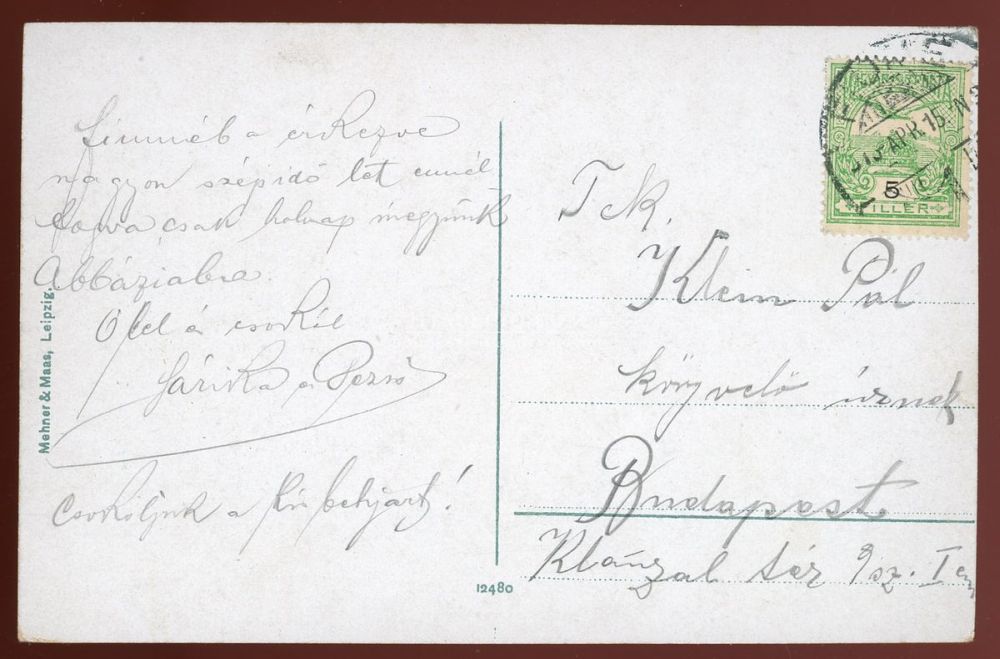 Fiuméba érkezve
nagyon szép idő lét ennél
fogva csak holnap megyünk
Abbáziába.
Ölel és csókol
Sárika és Dezső
Csókoljuk a kis
Mehner & Maas, Leipzig.
12480
915 APR. 15
5
FILLER
Tek.
Klein Pál
könyvelő úrnak
Budapest
Klauzál tér 9 sz. I em